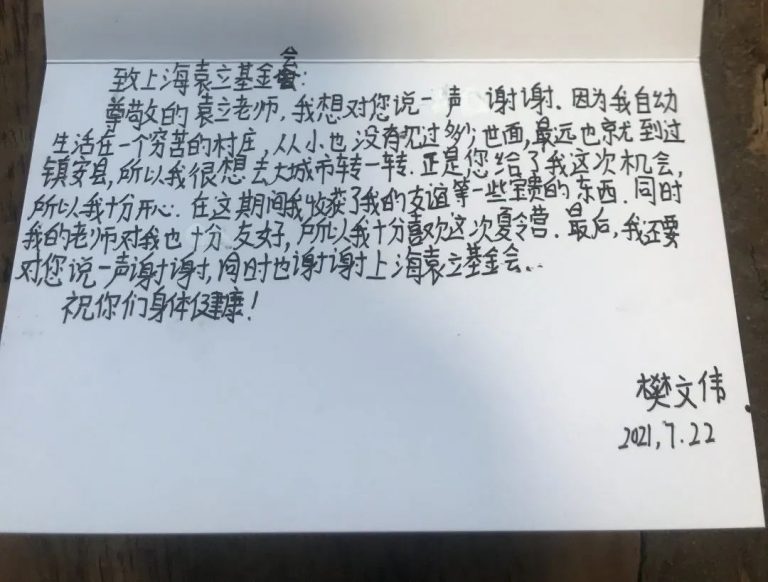 致上海袁立基金会:
尊敬的袁立老师,我想对您说一声 谢谢.因为我自幼
生活在一个穷苦的村庄,从小也没有见过多少世面,最远也就到过
镇安县,所以我很想去大城市转一转.正是您给了我这次机会,
所以我十分开心.在这期间我收获了我的友谊等一些宝贵的东西.同时
我的老师对我也十分友好,所以我十分喜欢这次夏令营.最后,我还要
对您说一声谢谢,同时也谢谢上海袁立基金会..
祝你们身体健康!
樊文伟
2021,7.22